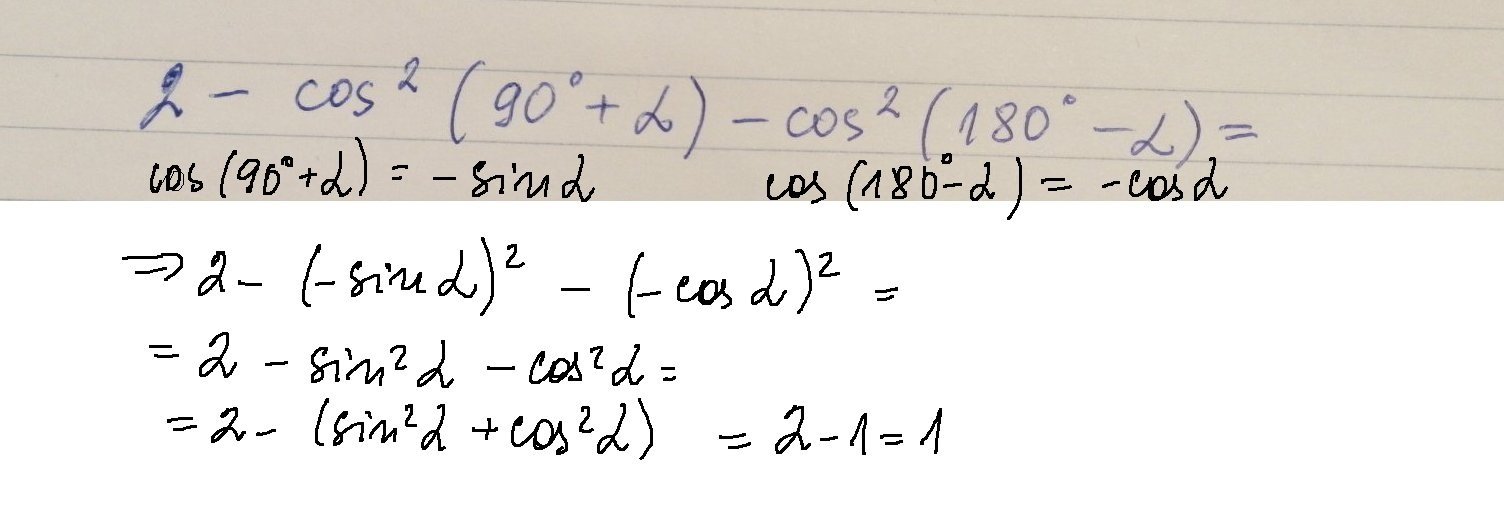 2 - cos² (90° + α) - cos² (180° - α) =
cos (90° + α) = - sin α cos (180° - α) = - cos α
⇒ 2 - (- sin α)² - (- cos α)² =
= 2 - sin² α - cos² α =
= 2 - (sin² α + cos² α) = 2 - 1 = 1